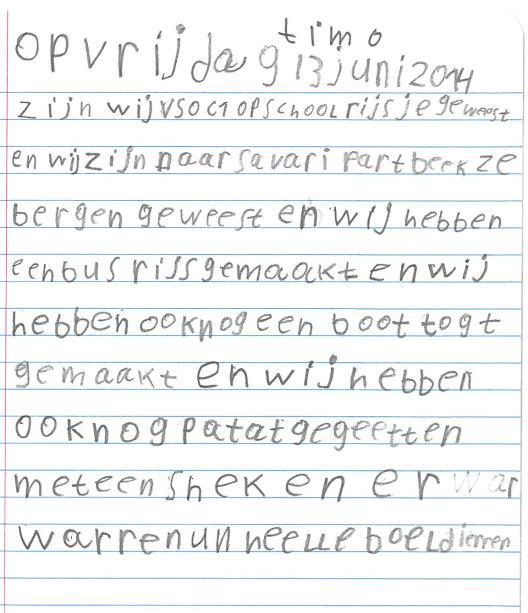 timo
op vrijdag 13 juni 2014
zijn wij VSO C1 op schoolrijsje geweest
en wij zijn naar savari partbeek ze
bergen geweest en wij hebben
een bus riss gemaakt en wij
hebben ook nog een boot togt
gemaakt en wij hebben
ook nog patat gegeetten
met een shek en er war
warren un heelle boel dierren